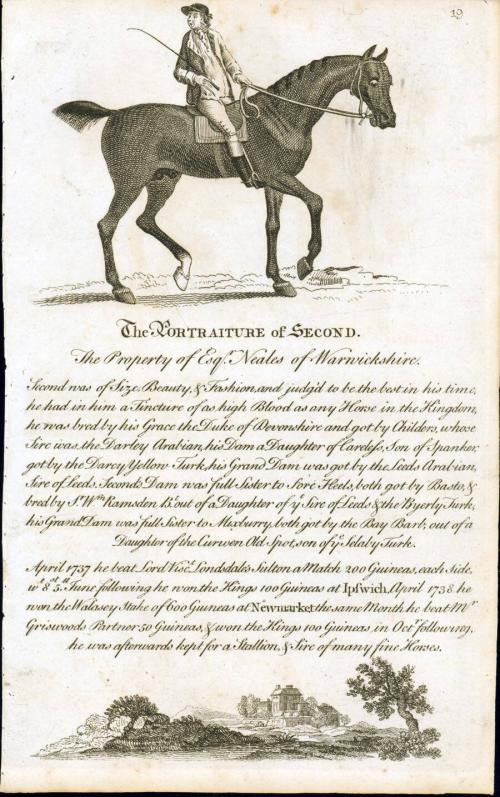 19
The PORTRAITURE of SECOND.
The Property of Esqr. Neales of Warwickshire.
Second was of Size, Beauty, & Fashion, and judg'd to be the best in his time,
he had in him a Tincture of as high Blood as any Horse in the Kingdom,
he was bred by his Grace the Duke of Devonshire and got by Childers, whose
Sire was the Darley Arabian, his Dam a Daughter of Careless, Son of Spanker,
got by the Darcy Yellow Turk, his Grand Dam was got by the Leeds Arabian,
Sire of Leeds. Seconds Dam was full Sister to Sore Heels, both got by Basto, &
bred by Sr. Wm. Ramsden Bt. out of a Daughter of ye Sire of Leeds & the Byerly Turk,
his Grand Dam was full Sister to Moxburry, both got by the Bay Barb, out of a
Daughter of the Curwen Old Spot, son of ye Selaby Turk.
April 1737 he beat Lord Visct. Londsdales Sulton a Match 200 Guineas, each Side,
wt. 8st. 5ll. June following he won the Kings 100 Guineas at Ipswich, April 1738 he
won the Walasey Stake of 600 Guineas at Newmarket, the same Month he beat Mr.
Griswoods Partner 50 Guineas, & won the Kings 100 Guineas in Octr. following,
he was afterwards kept for a Stallion, & Sire of many fine Horses.